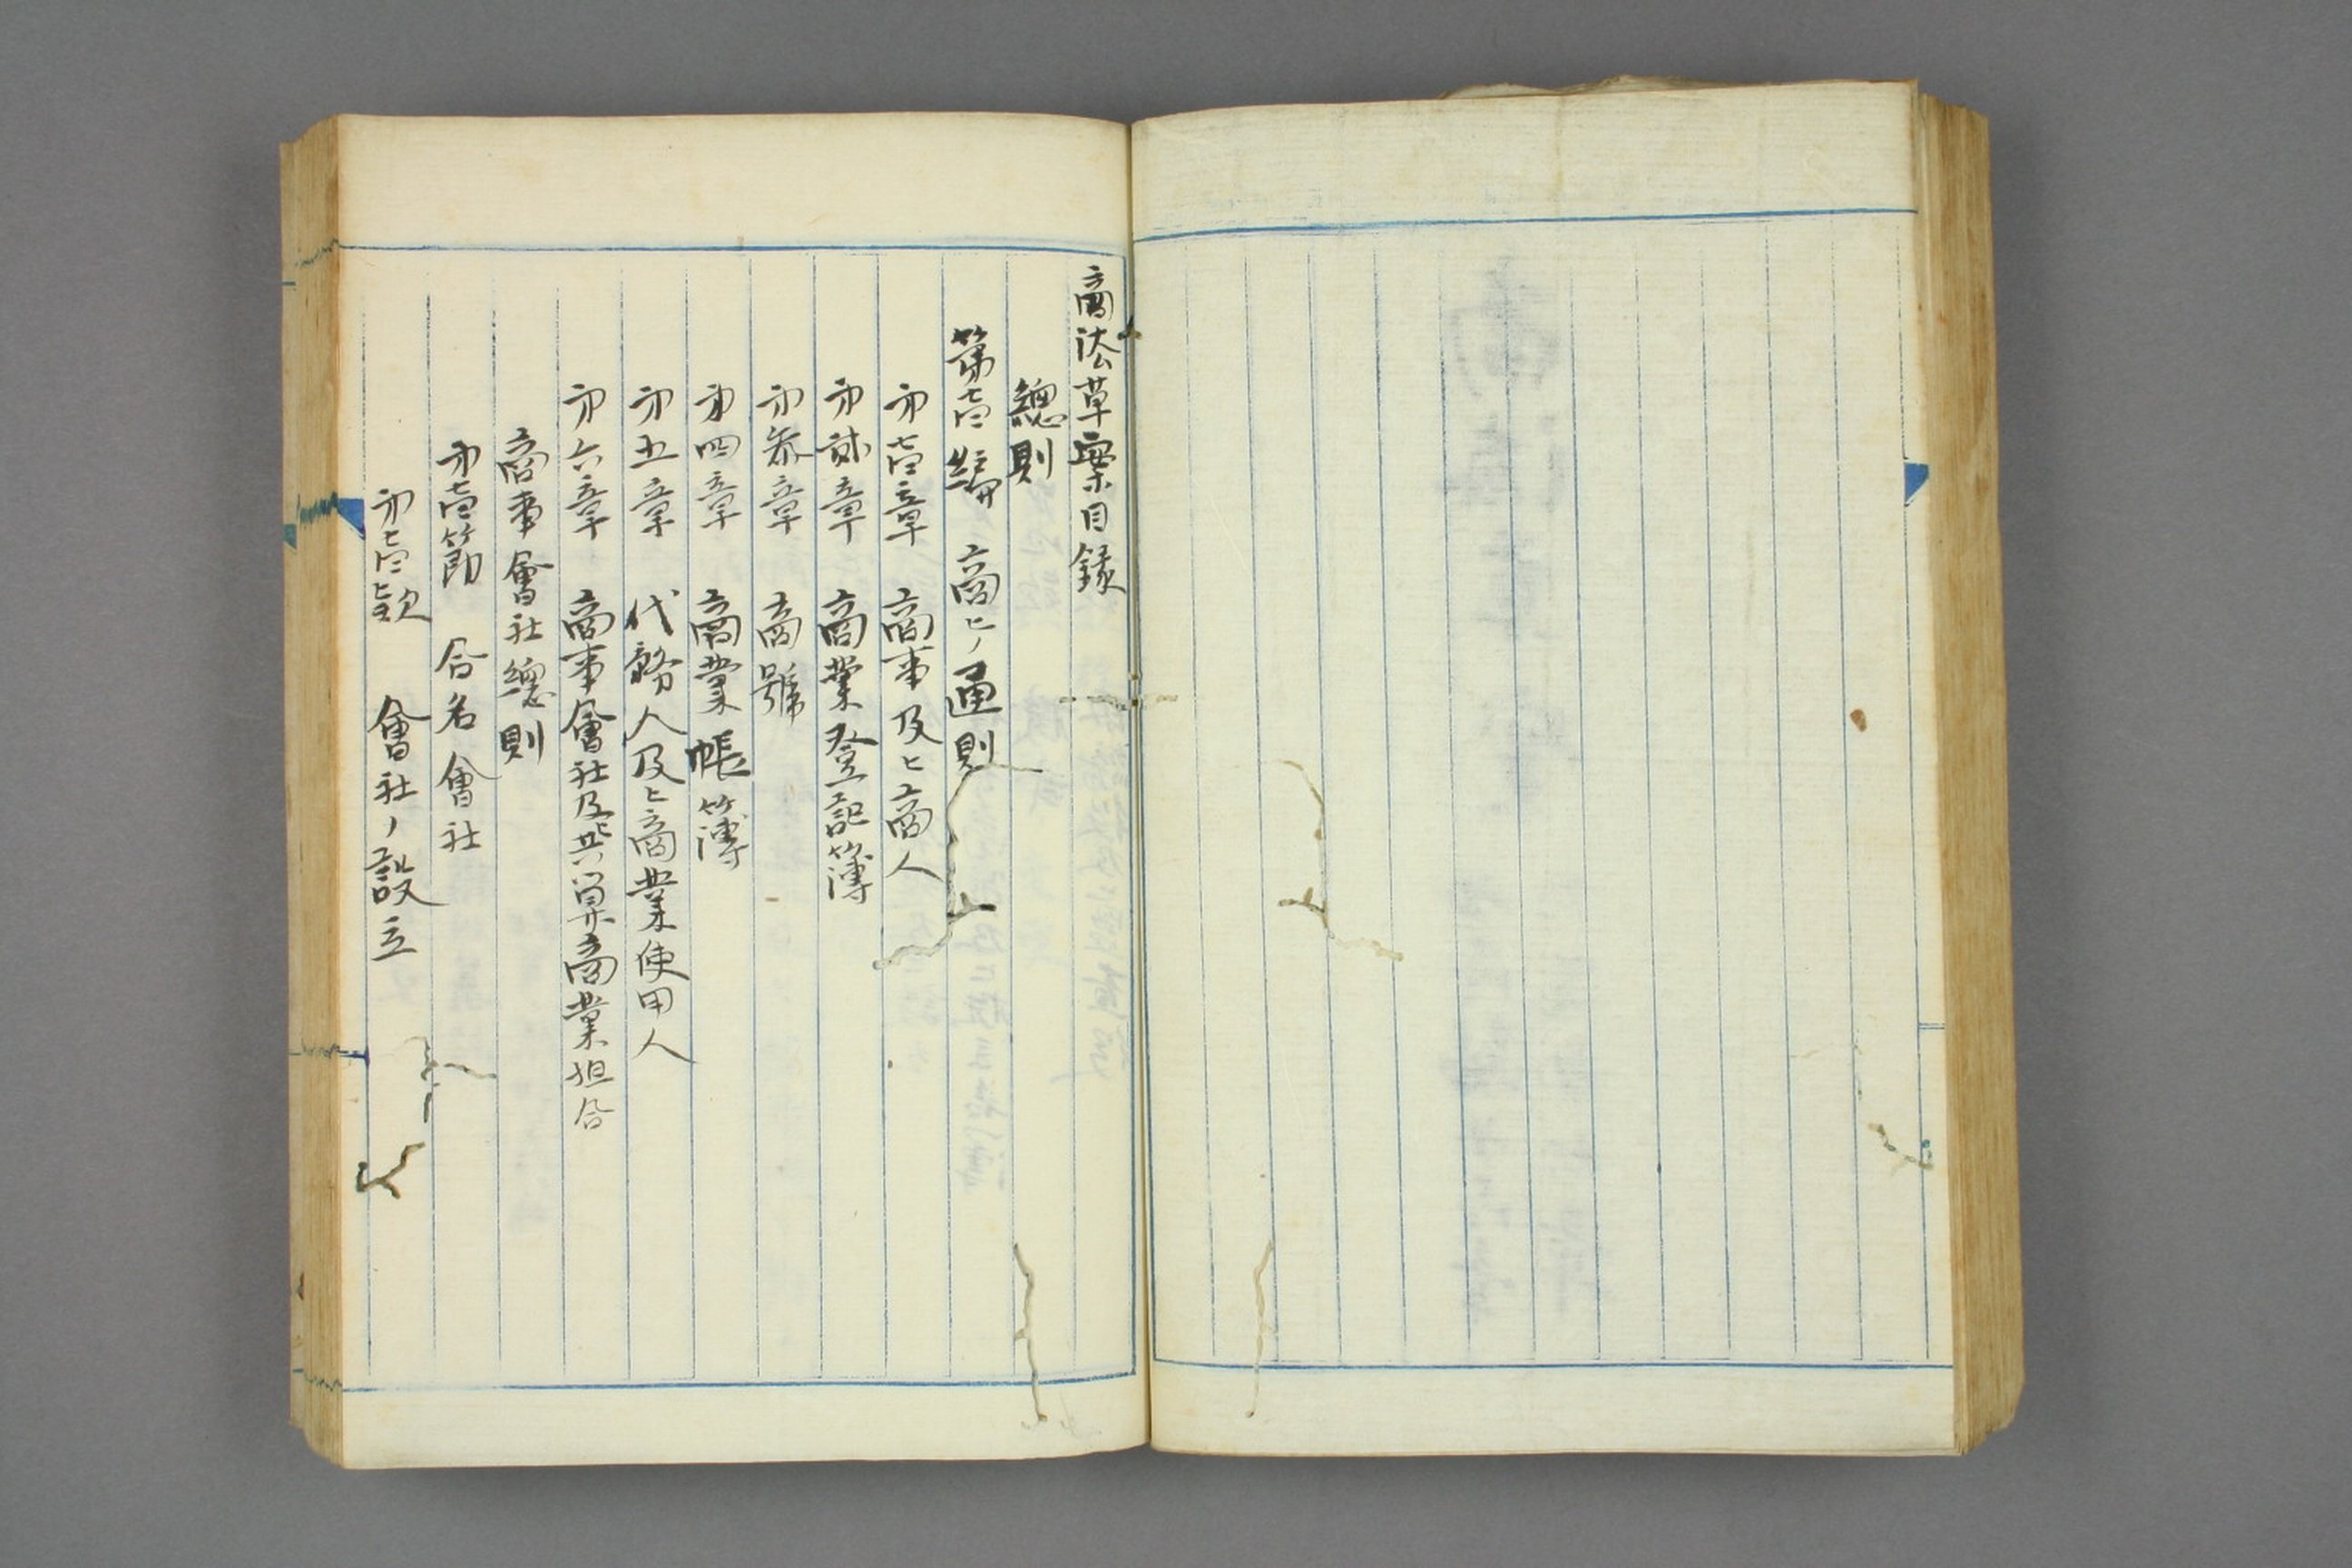 商法草案目錄
總則
第壹編 商ヒノ通則
第壹章 商事及ヒ商人
第貳章 商業登記簿
第参章 商號
第四章 商業帳簿
第五章 代務人及ヒ商業使用人
第六章 商事會社及ヒ共算商業組合
商事會社總則
第壹節 合名會社
第壹款 會社ノ設立